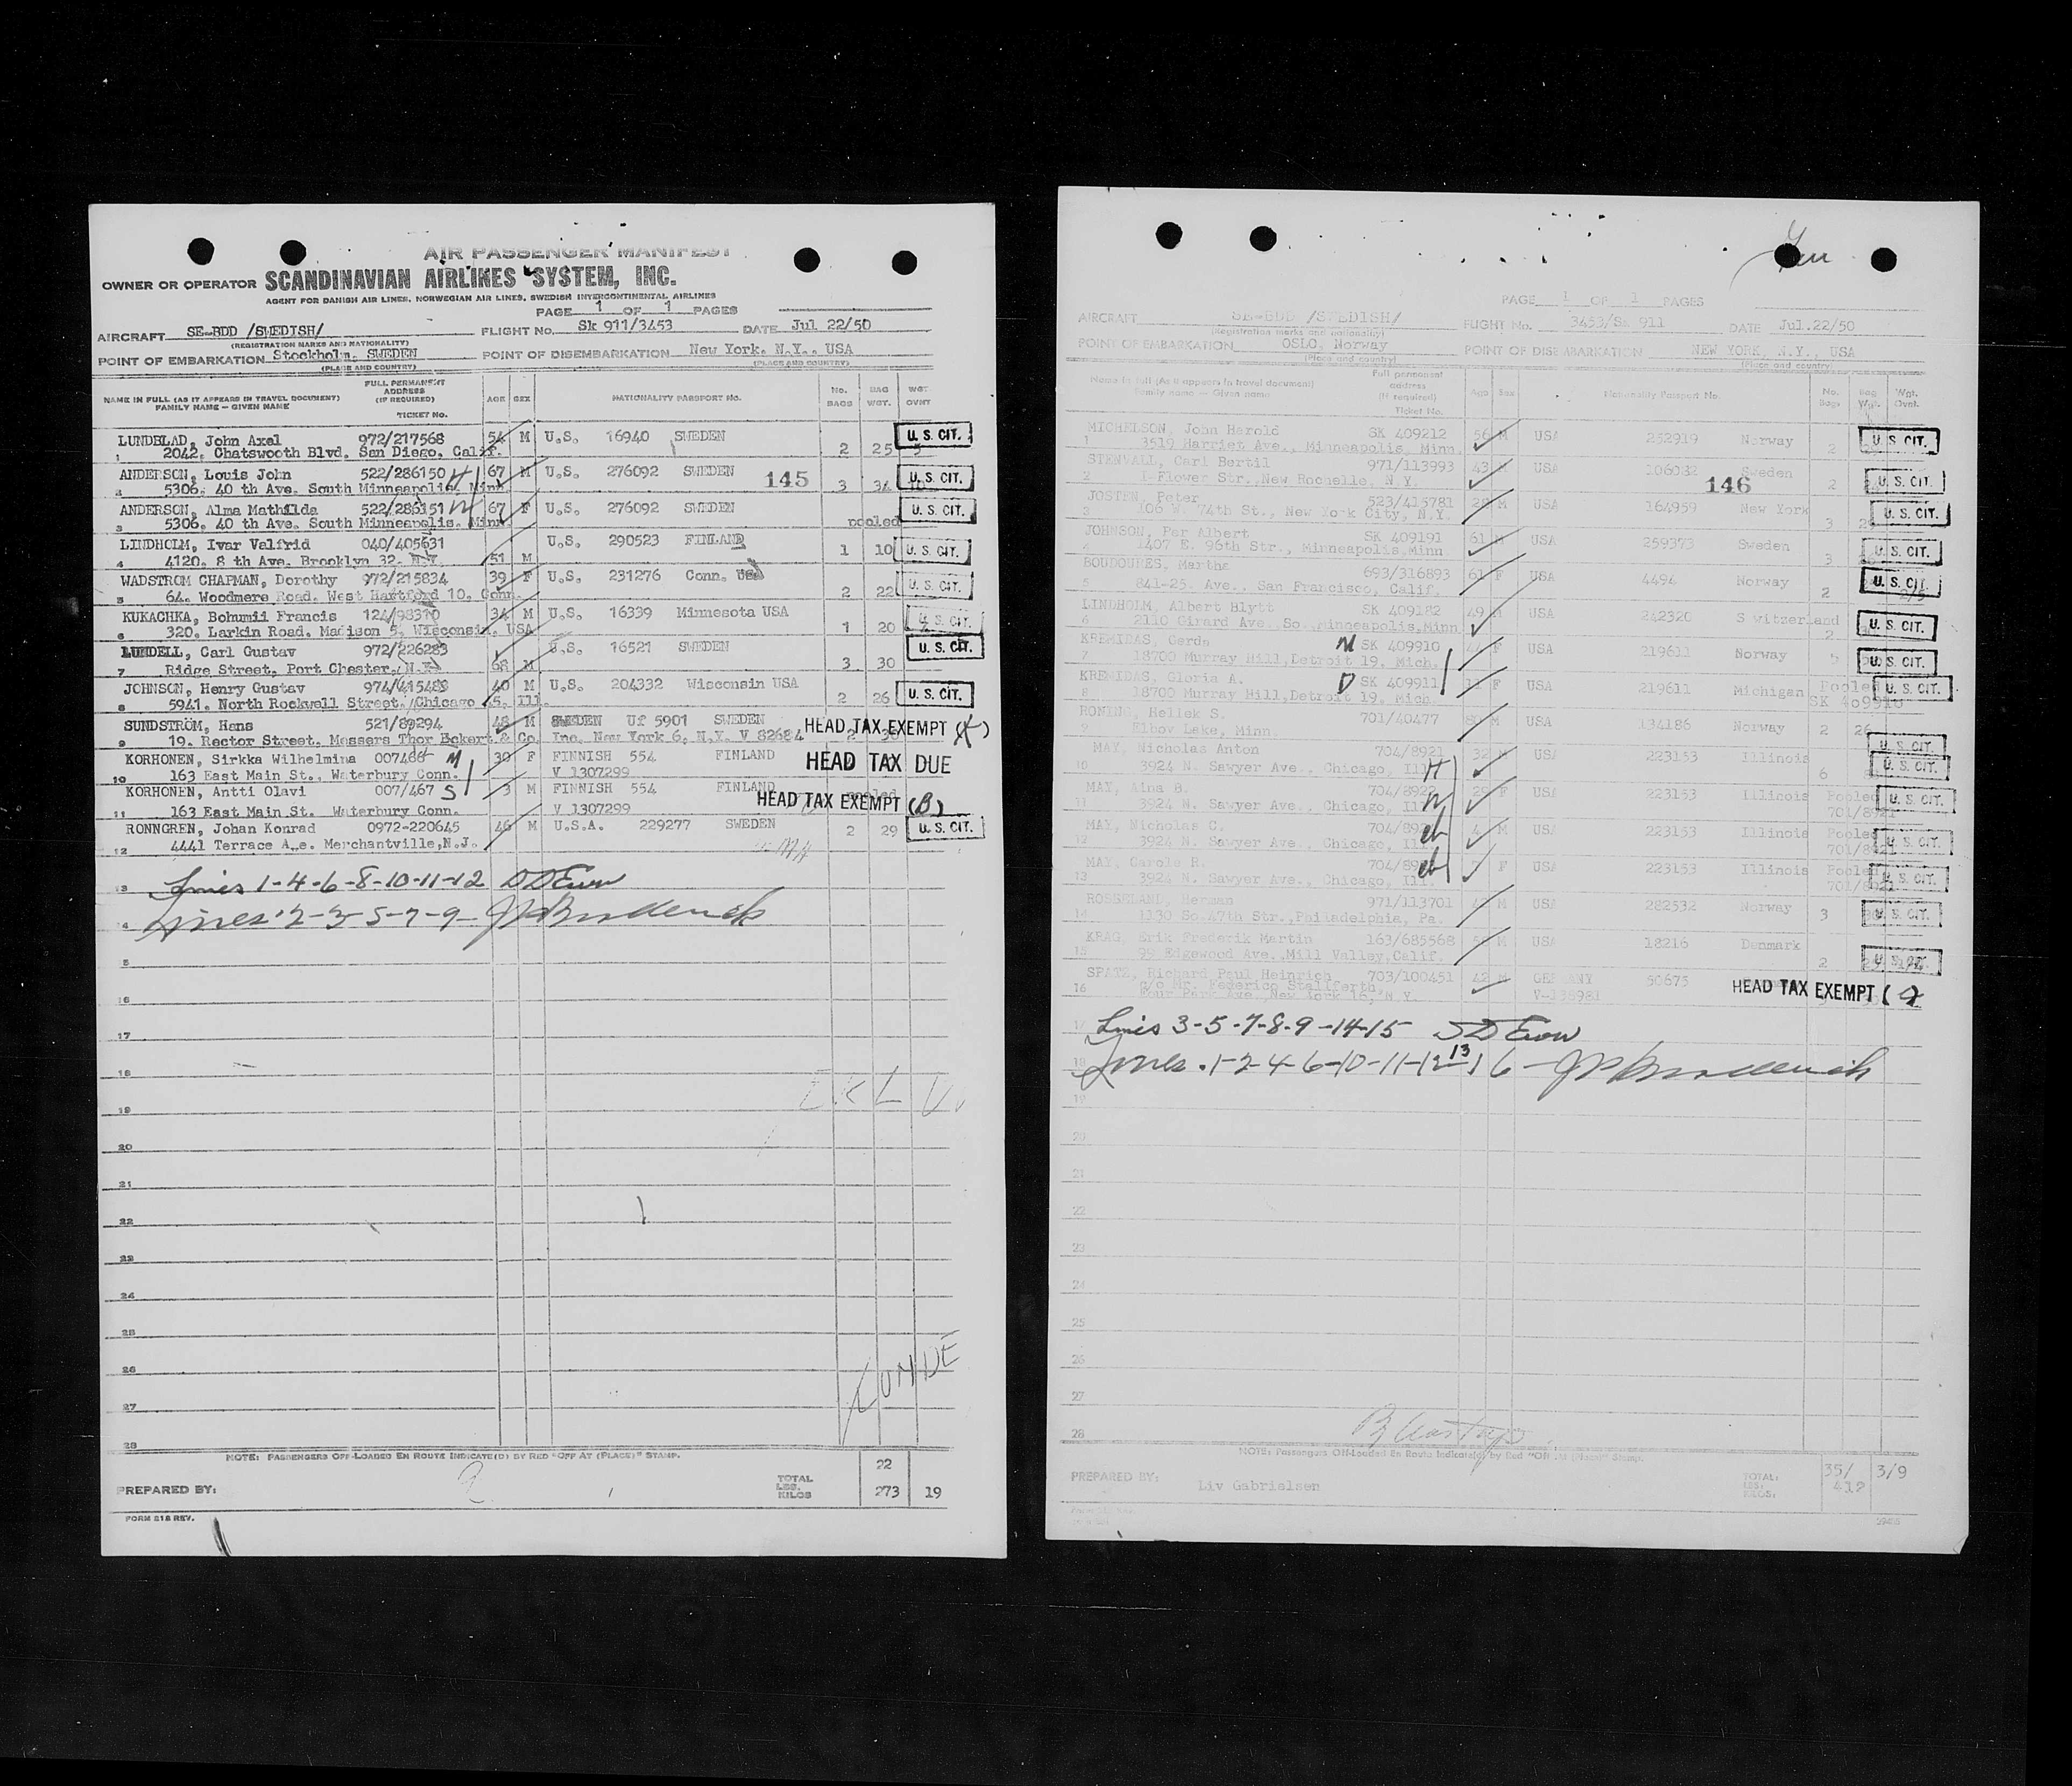 AIR PASSENGER MANIFEST
OWNER OR OPERATOR SCANDINAVIAN AIRLINES SYSTEM, INC.
AGENT FOR DANISH AIR LINES, NORWEGIAN AIR LINES, SWEDISH INTERCONTINENTAL AIRLINES
PAGE 1 OF 1 PAGES
AIRCRAFT SE-BDD /SWEDISH/ FLIGHT No. Sk 911/3453 DATE Jul 22/50
(REGISTRATION MARKS AND NATIONALITY)
POINT OF EMBARKATION Stockholm. SWEDEN POINT OF DISEMBARKATION New York. N.Y., USA
(PLACE AND COUNTRY) (PLACE AND COUNTRY)
NAME IN FULL (AS IT APPEARS IN TRAVEL DOCUMENT) FAMILY NAME — GIVEN NAME FULL PERMANENT ADDRESS (IF REQUIRED) TICKET No. AGE SEX NATIONALITY PASSPORT NO. No. BAGS BAG WGT. WGT OVNT
LUNDBLAD, John Axel 972/217568 54 M U.S. 16940 SWEDEN U. S. CIT.
1 2042. Chatswooth Blvd. San Diego. Calif. 2 25
ANDERSON, Louis John 522/286150 H 67 M U.S. 276092 SWEDEN 145 U. S. CIT.
2 5306. 40 th Ave. South Minneapolis. Minn. 3 34
ANDERSON, Alma Mathilda 522/286151 W 67 F U.S. 276092 SWEDEN U. S. CIT.
3 5306. 40 th Ave. South Minneapolis. Minn. pooled
LINDHOLM, Ivar Valfrid 040/405631 U.S. 290523 FINLAND
4 4120. 8 th Ave. Brooklyn 32. N.Y. 51 M 1 10 U. S. CIT.
WADSTROM CHAPMAN, Dorothy 972/215834 39 F U.S. 231276 Conn. USA
5 64. Woodmere Road. West Hartford 10. Conn. 2 22 U. S. CIT.
KUKACHKA, Bohumii Francis 124/98310 34 M U.S. 16339 Minnesota USA
6 320. Larkin Road. Madison 5. Wisconsin. USA 1 20 U. S. CIT.
LUNDELL, Carl Gustav 972/226283 U.S. 16521 SWEDEN U. S. CIT.
7 Ridge Street. Port Chester. N.Y. 68 M 3 30
JOHNSON, Henry Gustav 974/415488 40 M U.S. 204332 Wisconsin USA
8 5941. North Rockwell Street. Chicago 45. Ill. 2 26 U. S. CIT.
SUNDSTROM, Hans 521/89294 48 M SWEDEN Uf 5901 SWEDEN HEAD TAX EXEMPT
9 19. Rector Street. Messers Thor Eckert & Co. Inc. New York 6. N.Y. V 82684
KORHONEN, Sirkka Wilhelmina 007466 M 30 F FINNISH 554 FINLAND HEAD TAX DUE
10 163 East Main St., Waterbury Conn. V 1307299
KORHONEN, Antti Olavi 007/467 S 3 M FINNISH 554 FINLAND pooled HEAD TAX EXEMPT (B)
11 163 East Main St. Waterbury Conn. V 1307299
RONNGREN, Johan Konrad 0972-220645 46 M U.S.A. 229277 SWEDEN 2 29 U. S. CIT.
12 4441 Terrace A.e. Merchantville,N.J.
13 Lines 1-4-6-8-10-11-12
14 Lines 2-3-5-7-9-
15
16
17
18
19
20
21
22
23
24
25
26
27
28
NOTE: PASSENGERS OFF-LOADED EN ROUTE INDICATE(D) BY RED "OFF AT (PLACE)" STAMP.
22
PREPARED BY: TOTAL LBS. KILOS 273 19
FORM 818 REV.
PAGE 1 OF 1 PAGES
AIRCRAFT SE-BDD /SWEDISH/ FLIGHT No. 3453/Sk 911 DATE Jul.22/50
(Registration marks and nationality)
POINT OF EMBARKATION OSLO, Norway POINT OF DISEMBARKATION NEW YORK, N.Y., USA
(Place and country) (Place and country)
Name in full (As it appears in travel document) Family name — Given name Full permanent address (If required) Ticket No. Age Sex Nationality Passport No. No. Bags Bag Wgt. Wgt. Ovnt.
MICHELSON, John Harold SK 409212 56 M USA 252919 Norway
1 3519 Harriet Ave., Minneapolis, Minn. 2 U. S. CIT.
STENWALL, Carl Bertil 971/113993 43 USA 106032 Sweden
2 1-Flower Str.,New Rochelle, N.Y. 146 2 U. S. CIT.
JOSTEN, Peter 523/415781 28 M USA 164959 New York
3 106 W. 74th St., New York City, N.Y. 3 U. S. CIT.
JOHNSON, Per Albert SK 409191 61 M USA 259373 Sweden
4 1407 E. 96th Str., Minneapolis,Minn 3 U. S. CIT.
BOUDOURES, Martha 693/316893 61 F USA 4494 Norway
5 841-25. Ave., San Francisco, Calif. 2 U. S. CIT.
LINDHOLM, Albert Blytt SK 409182 49 M USA 242320 Switzerland
6 2110 Girard Ave. So. Minneapolis,Minn 2 U. S. CIT.
KREMIDAS, Gerda M SK 409910 F USA 219611 Norway
7 18700 Murray Hill,Detroit 19, Mich. 5 U. S. CIT.
KREMIDAS, Gloria A. D SK 409911 11 F USA 219611 Michigan Pooled U. S. CIT.
8 18700 Murray Hill,Detroit 19, Mich. SK 409910
RONING, Hellek S. 701/40477 M USA 134186 Norway 2 26
9 Elbow Lake, Minn. U. S. CIT.
MAY, Nicholas Anton 704/8921 32 M USA 223153 Illinois
10 3924 N. Sawyer Ave., Chicago, Ill. H 6 U. S. CIT.
MAY, Aina B. 704/8922 29 F USA 223153 Illinois Pooled U. S. CIT.
11 3924 N. Sawyer Ave., Chicago, Ill. W 701/8921
MAY, Nicholas C. 4 M USA 223153 Illinois Pooled
12 3924 N. Sawyer Ave., Chicago, Ill. ch 701/8921 U. S. CIT.
MAY, Carole R. F USA 223153 Illinois Pooled
13 3924 N. Sawyer Ave., Chicago, Ill. ch 701/8921 U. S. CIT.
ROSSELAND, Herman 971/113701 M USA 282532 Norway
14 1130 So.47th Str.,Philadelphia, Pa. 3 U. S. CIT.
KRAG, Erik Frederik Martin 163/685568 M USA 18216 Denmark
15 99 Edgewood Ave.,Mill Valley,Calif. 2 U. S. CIT.
SPATZ, Richard Paul Heinrich 703/100451 42 M GERMANY 50675 HEAD TAX EXEMPT
16 c/o Mr. Federico Stallforth, V-138981
Four Park Ave. New York 16, N.Y.
17 Lines 3-5-7-8-9-14-15
18 Lines 1-2-4-6-10-11-12-13-16-
19
20
21
22
23
24
25
26
27
28
NOTE: Passengers Off-Loaded En Route Indicate(d) by Red "Off At (Place)" Stamp.
PREPARED BY: Liv Gabrielsen TOTAL: LBS: KILOS: 35/ 412 3/9